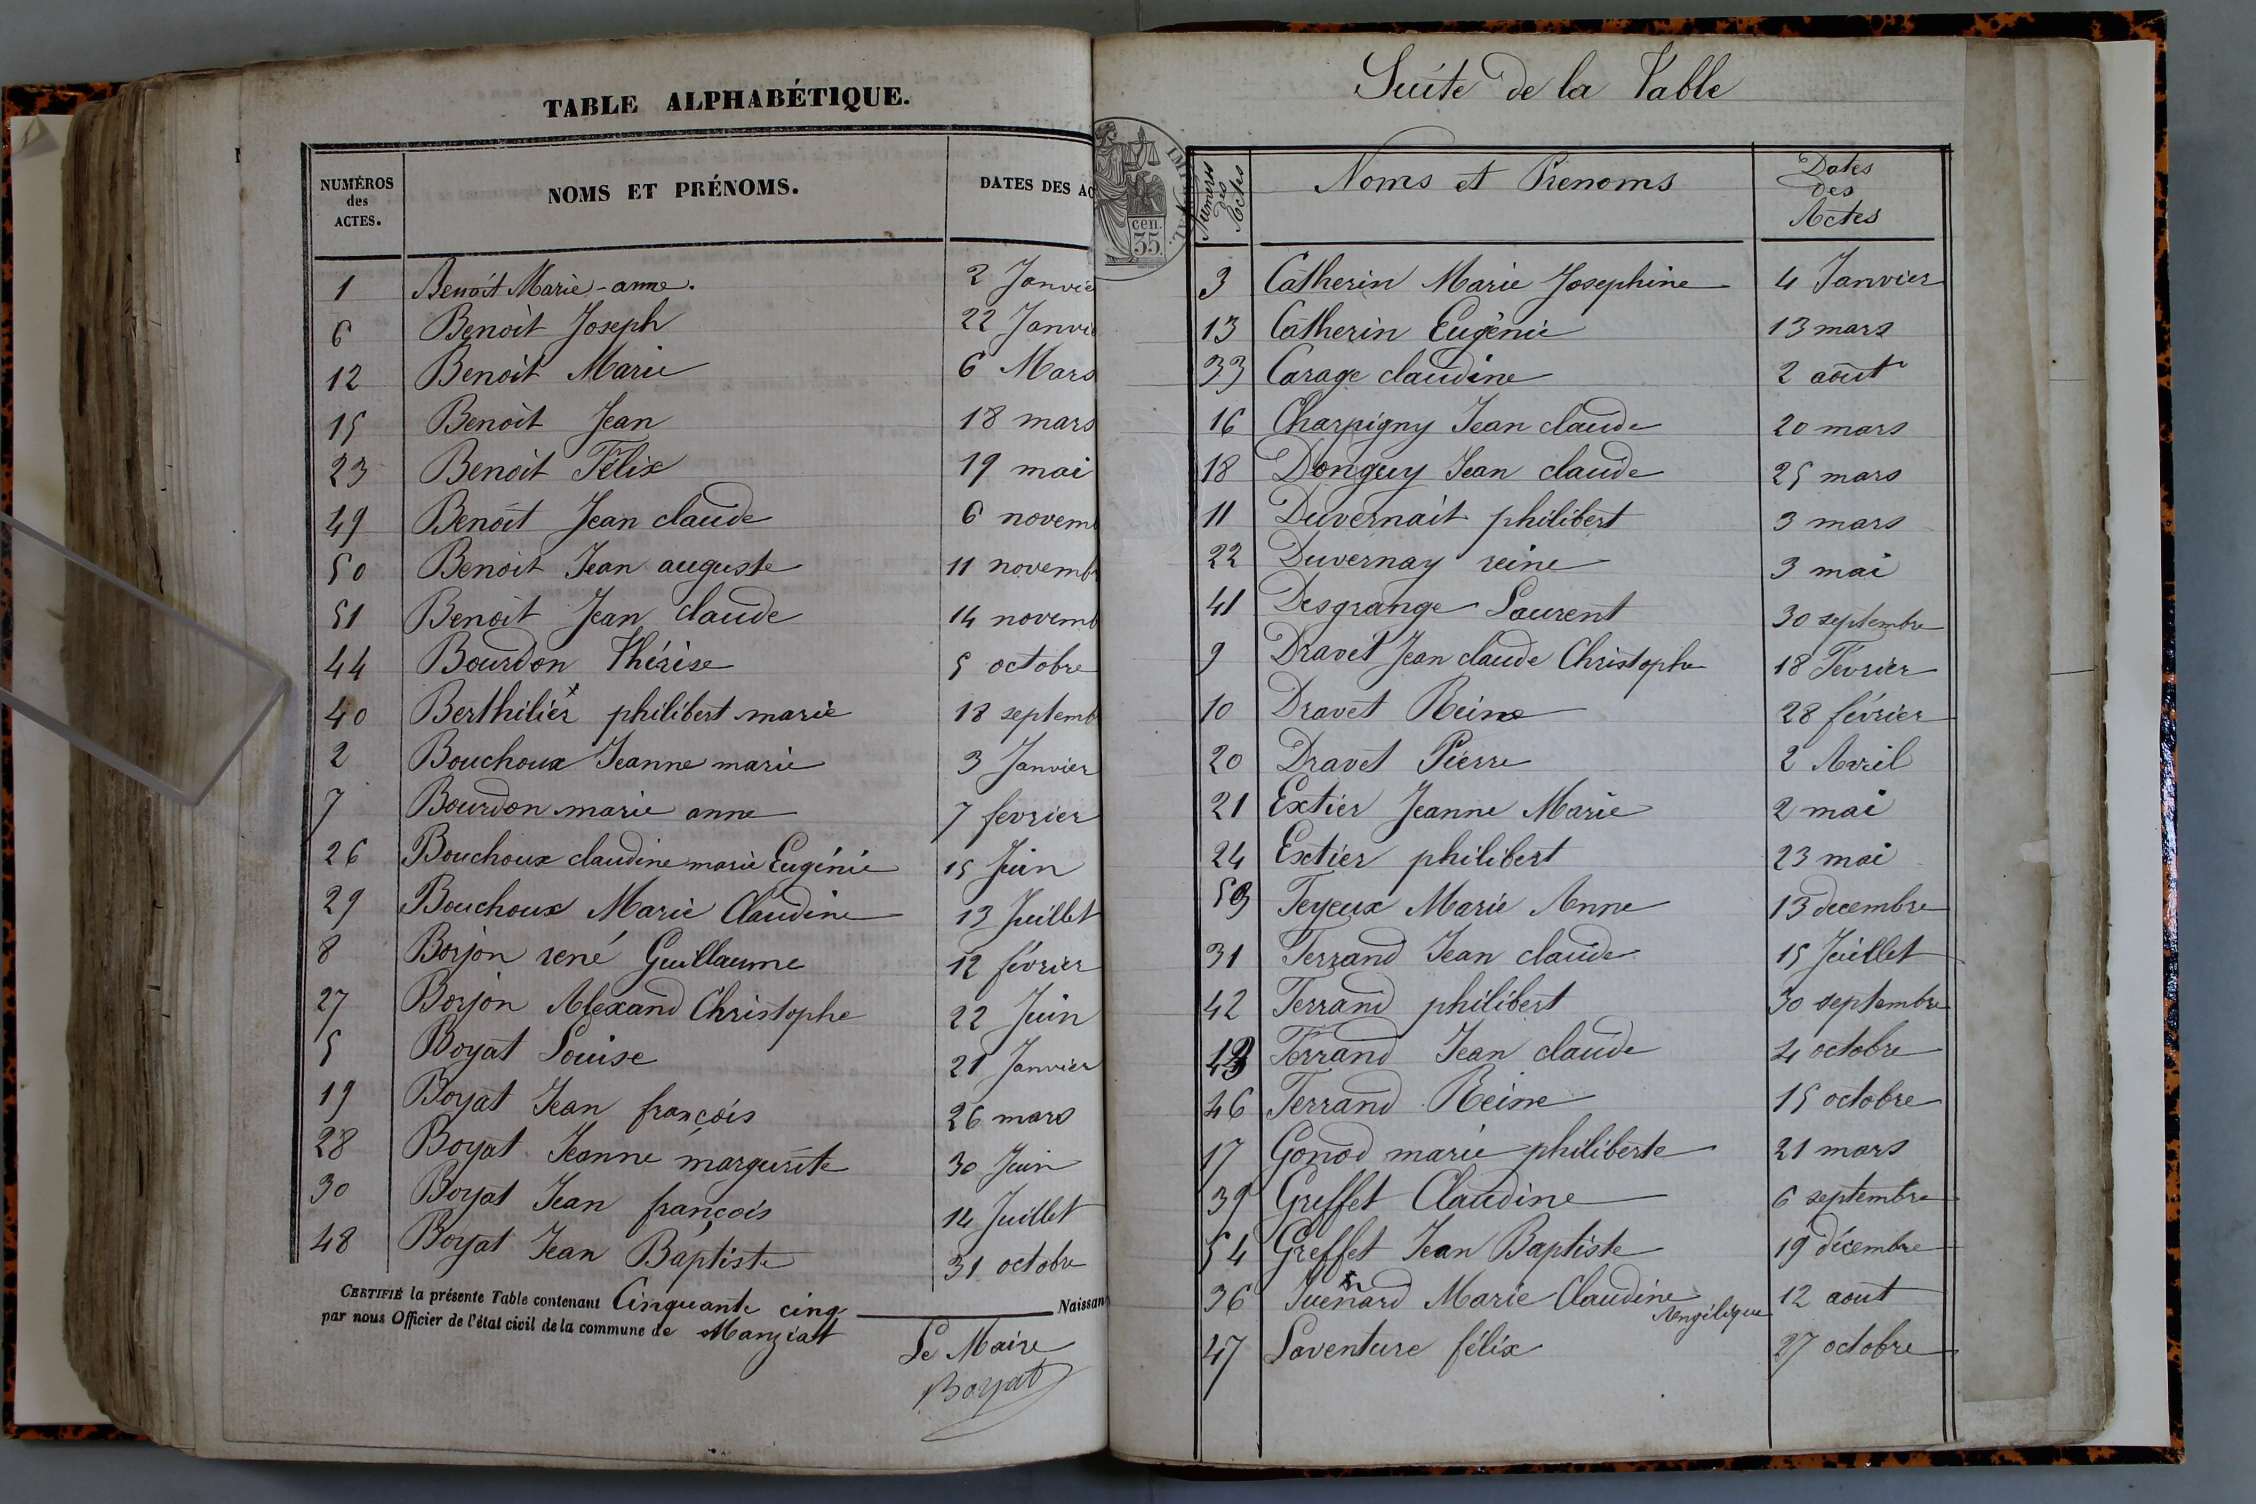 TABLE ALPHABÉTIQUE.
NUMÉROS
des
ACTES.
NOMS ET PRÉNOMS.
DATES DES AC
1 Benoît Marie-anne. 2 Janvie
6 Benoît Joseph 22 Janvie
12 Benoît Marie 6 Mars
15 Benoît Jean 18 mars
23 Benoît Félix 19 mai
49 Benoît Jean claude 6 novemb
50 Benoit Jean auguste 11 novembr
51 Benoit Jean claude 14 novemb
44 Bourdon Thérise 5 octobre
40 Berthilier philibert marie 18 septemb
2 Bouchoux Jeanne marie 3 Janvier
7 Bourdon marie anne 7 fevrier
26 Bouchoux claudine marie Eugénie 15 Juin
29 Bouchoux Marie Claudine 13 Juillet
8 Borjon rené Guillaume 12 février
27 Borjon Alexand Christophe 22 Juin
5 Boyat Louise 21 Janvier
19 Boyat Jean françois 26 mars
28 Boyat Jeanne margurite 30 Juin
30 Boyat Jean françois 14 Juillet
48 Boyat Jean Baptiste 31 octobre
CERTIFIÉ la présente Table contenant Cinquante cinq Naissan
par nous Officier de l'état civil de la commune de Manziat
Le Maire
Boyat
Suite de la Table
IMPÉRIAL.
cen.
35.
Numéros
des
Actes
Noms et Prenoms
Dates
des
Actes
3 Catherin Marie Josephine 4 Janvier
13 Catherin Eugénie 13 mars
33 Carage claudine 2 août
16 Charpigny Jean claude 20 mars
18 Donguy Jean claude 25 mars
11 Duvernait philibert 3 mars
22 Duvernay reine 3 mai
41 Desgrange Laurent 30 septembre
9 Dravet Jean claude Christophe 18 Fevrier
10 Dravet Reine 28 février
20 Dravet Pierre 2 Avril
21 Extier Jeanne Marie 2 mai
24 Extier philibert 23 mai
53 Feyeux Marie Anne 13 decembre
31 Ferrand Jean claude 15 Juillet
42 Ferrand philibert 30 septembre
43 Ferrand Jean claude 4 octobre
46 Ferrand Reine 15 octobre
17 Gonod marie philiberte 21 mars
39 Greffet Claudine 6 septembre
54 Greffet Jean Baptiste 19 décembre
36 Juenard Marie Claudine 12 aout
Angélique
47 Laventure félix 27 octobre